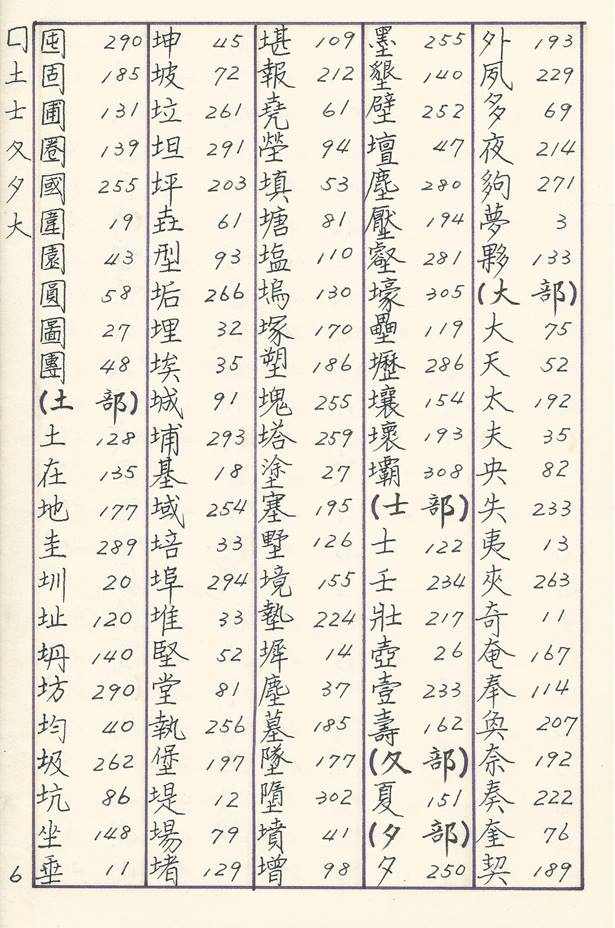 囗
土
士
夊
夕
大
6
囤 290
固 185
圃 131
圈 139
國 255
圍 19
園 43
圓 58
圖 27
團 48
(土 部)
土 128
在 135
地 177
圭 289
圳 20
址 120
坍 140
坊 290
均 40
圾 262
坑 86
坐 148
垂 11
坤 45
坡 72
垃 261
坦 291
坪 203
垚 61
型 93
垢 266
埋 32
埃 35
城 91
埔 293
基 18
域 254
培 33
埠 294
堆 33
堅 52
堂 81
執 256
堡 197
堤 12
場 79
堵 129
堪 109
報 212
堯 61
塋 94
填 53
塘 81
塩 110
塢 130
塚 170
塑 186
塊 255
塔 259
塗 27
塞 195
墅 126
境 155
墊 224
墀 14
塵 37
墓 185
墜 177
墮 302
墳 41
增 98
墨 255
墾 140
壁 252
壇 47
280
壓 194
壑 281
壕 305
壘 119
壢 286
壤 154
壞 193
壩 308
(士 部)
士 122
壬 234
壯 217
壺 26
壹 233
壽 162
(夊 部)
夏 151
(夕 部)
夕 250
外 193
夙 229
多 69
夜 214
夠 271
夢 3
夥 133
(大 部)
大 75
天 52
太 192
夫 35
央 82
失 233
夷 13
夾 263
奇 11
奄 167
奉 114
奐 207
奈 192
奏 222
奎 76
契 189